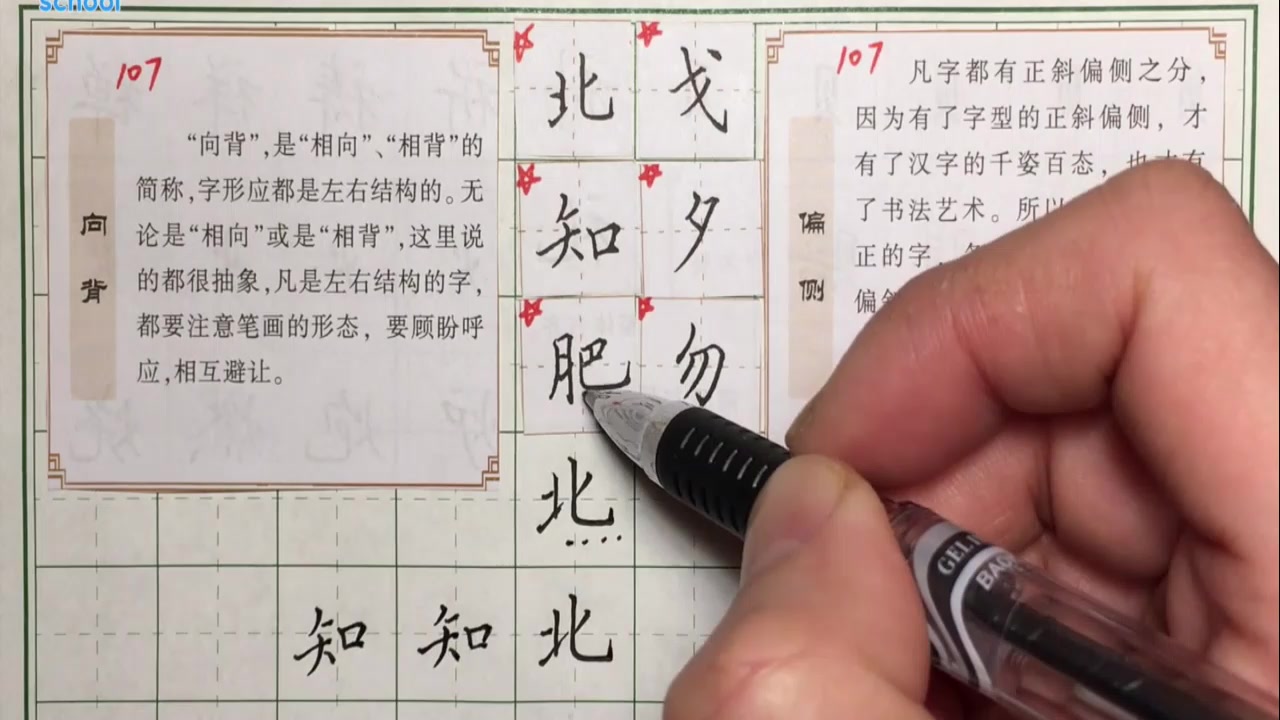 school
107
“向背”，是“相向”、“相背”的
简称，字形应都是左右结构的。无
论是“相向”或是“相背”，这里说
的都很抽象，凡是左右结构的字，
都要注意笔画的形态，要顾盼呼
应，相互避让。
向背
北 戈
知 夕
肥 勿
北
知 知 北
107
凡字都有正斜偏侧之分，
因为有了字型的正斜偏侧，才
有了汉字的千姿百态，也才有
了书法艺术。所以
正的字，
偏
偏侧
GEL
BAO